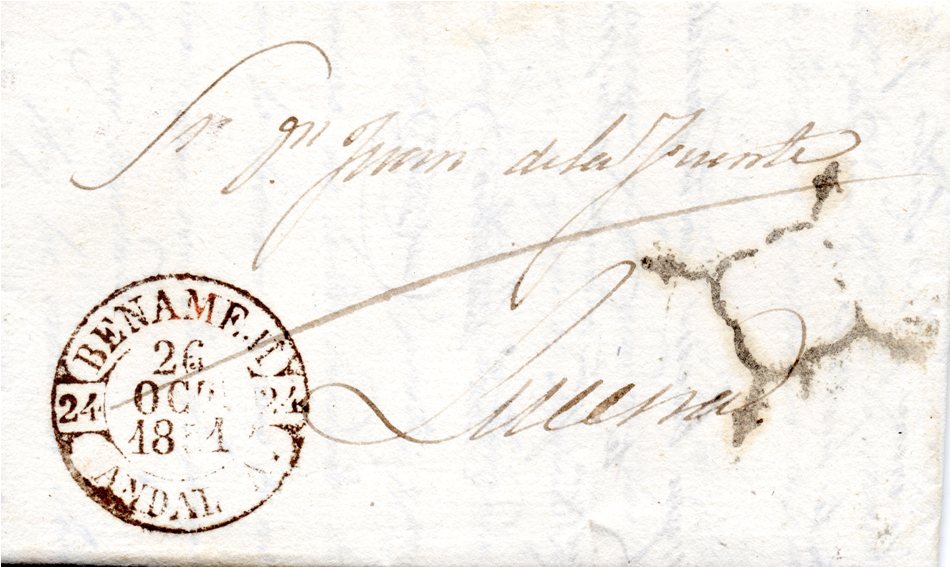 Sr Dn Juan dela Fuente
Lucena
BENAMEJI
26
OCT
24 24
1851
ANDAL